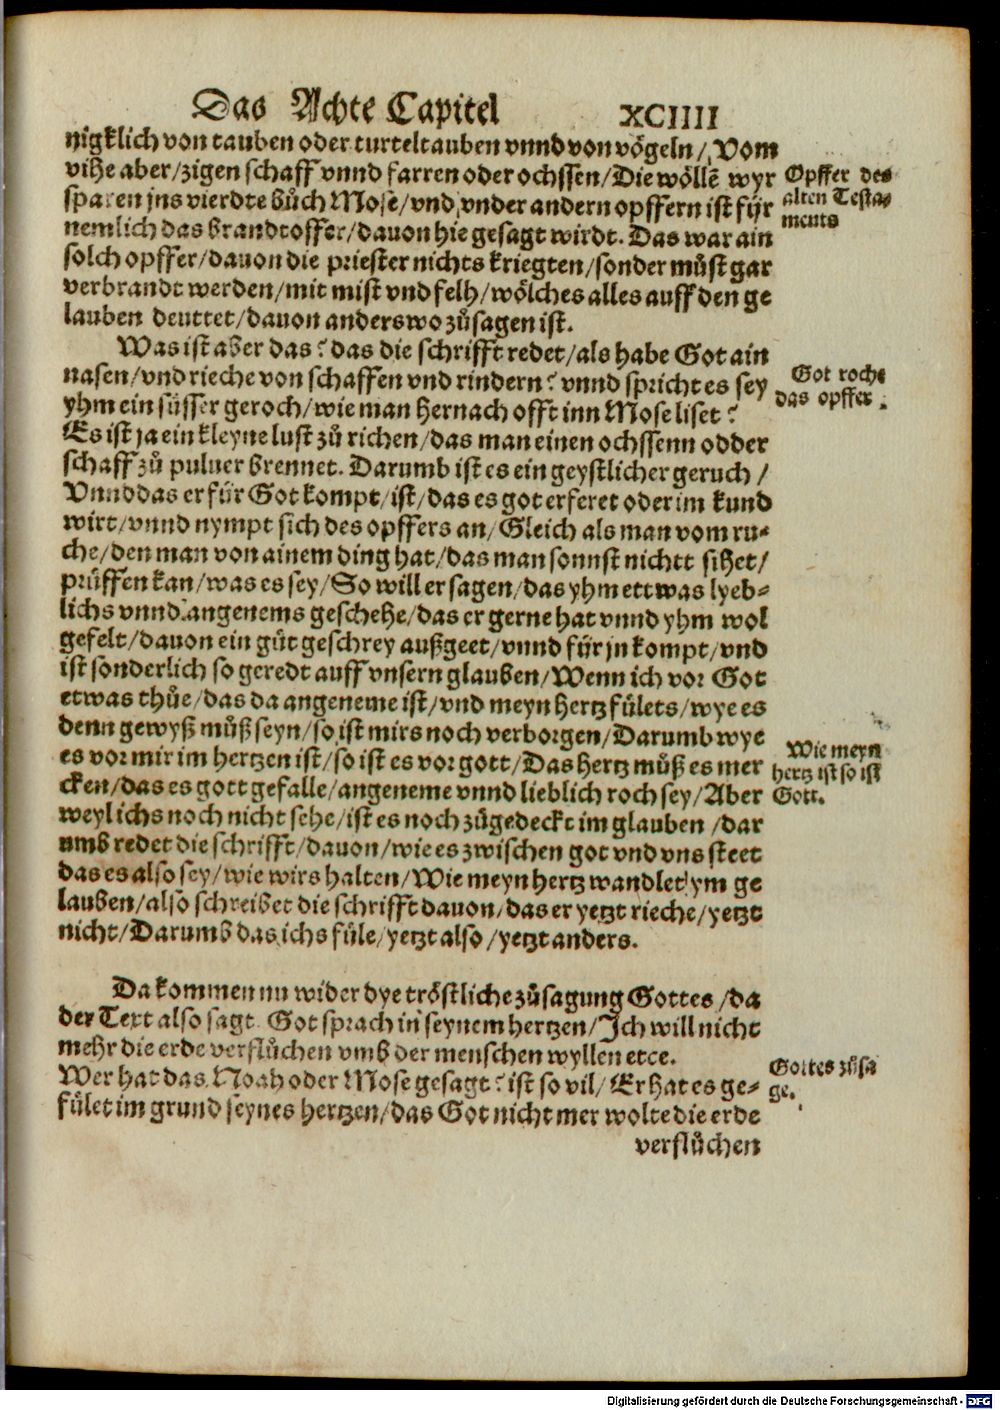 Das Achte Capitel XCIIII
nigklich von tauben oder turteltauben vnnd von vögeln / Vom
vihe aber / zigen schaff vnnd farren oder ochssen / Die wöllē wyr
sparen jns vierdte bůch Mose / vnd vnder andern opffern ist für
nemlich das brandtoffer / dauon hie gesagt wirdt. Das war ain
solch opffer / dauon die priester nichts kriegten / sonder můst gar
verbrandt werden / mit mist vnd felh / wölches alles auff den ge
lauben deuttet / dauon anderswo zů sagen ist.
Opffer des
alten Testa-
ments
Was ist aber das? das die schrifft redet / als habe Got ain
nasen / vnd rieche von schaffen vnd rindern? vnnd spricht es sey
yhm ein süsser geroch / wie man hernach offt inn Mose liset?
Es ist ja ein kleyne lust zů richen / das man einen ochssenn odder
schaff zů puluer brennet. Darumb ist es ein geystlicher geruch /
Vnnd das er für Got kompt / ist / das es got erferet oder im kund
wirt / vnnd nympt sich des opffers an / Gleich als man vom ru-
che / den man von ainem ding hat / das man sonnst nichtt sihet /
prüffen kan / was es sey / So will er sagen / das yhm ettwas lyeb-
lichs vnnd angenems geschehe / das er gerne hat vnnd yhm wol
gefelt / dauon ein gůt geschrey außgeet / vnnd für jn kompt / vnd
ist sonderlich so geredt auff vnsern glauben / Wenn ich vor Got
etwas thůe / das da angeneme ist / vnd meyn hertz fülets / wye es
denn gewyß můß seyn / so ist mirs noch verborgen / Darumb wye
es vor mir im hertzen ist / so ist es vor gott / Das hertz můß es mer
cken / das es gott gefalle / angeneme vnnd lieblich roch sey / Aber
weyl ichs noch nicht sehe / ist es noch zůgedeckt im glauben / dar
umb redet die schrifft / dauon / wie es zwischen got vnd vns steet
das es also sey / wie wirs halten / Wie meyn hertz wandlet ym ge
lauben / also schreibet die schrifft dauon / das er yetzt rieche / yetzt
nicht / Darumb das ichs füle / yetzt also / yetzt anders.
Got roche
das opffer.
Wie meyn
hertz ist so ist
Gott.
Da kommen nu wider dye tröstliche zůsagung Gottes / da
der Text also sagt Got sprach in seynem hertzen / Ich will nicht
mehr die erde verflůchen vmb der menschen wyllen etce.
Wer hat das Noah oder Mose gesagt? ist so vil / Er hat es ge-
fület im grund seynes hertzen / das Got nicht mer wolte die erde
verflůchen
Gottes zůsa
ge.
Digitalisierung gefördert durch die Deutsche Forschungsgemeinschaft - DFG